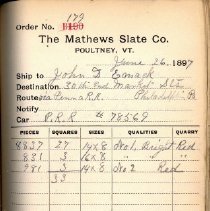 172
Order No. 3190
The Mathews Slate Co.
POULTNEY, VT.
June 26, 1897
Ship to John D Esnack
Destination 30th and Market Sts
Route via Penna R.R. Philadelphia Pa
Notify
Car P.R.R. 78569
PIECES SQUARES SIZES QUALITIES QUARRY
8837 27 14x8 No 1, Bright Red
831 3 16x8 " " "
981 3 14x8 No 2 Red
33